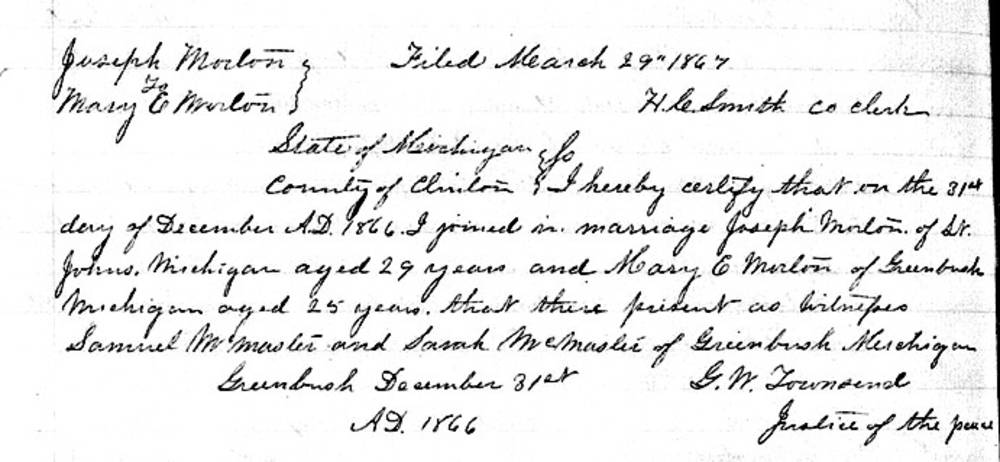 Joseph Morton } Filed March 29th 1867
To
Mary E Morton } H. C. Smith Co Clerk
State of Michigan } Ss
County of Clinton } I hereby certify that on the 31st
day of December A.D. 1866. I joined in marriage Joseph Morton. of St.
Johns. Michigan aged 29 years and Mary E Morton of Greenbush
Michigan aged 25 years. that there present as witness
Samuel McMaster and Sarah McMaster of Greenbush Michigan
Greenbush December 31st G. W. Townsend
A.D. 1866 Justice of the peace